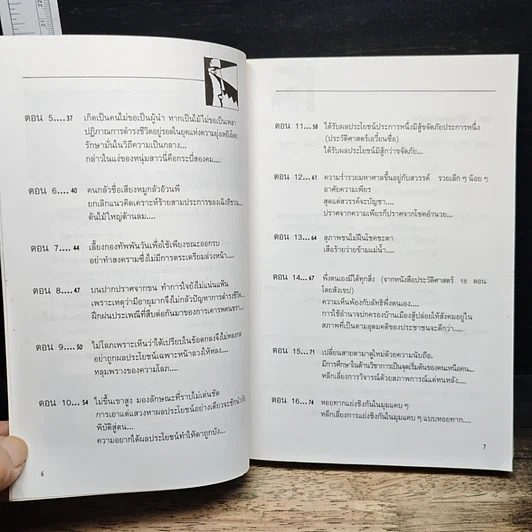 ตอน 5....37 เกิดเป็นคนไม่ขอเป็นผู้นำ หากเป็นไม้ไม่ขอเป็นเสา
ปฏิภาณการดำรงชีวิตอยู่รอดในยุคแห่งความยุ่งเหยิงโดย
รักษามั่นในวิถีความเป็นกลาง...
กล่าวในแง่ของหนุ่มสาวนี่คือกระบี่สองคม....
ตอน 6....40 คนกลัวชื่อเสียงหมูกลัวอ้วนพี
ยกเลิกแนวคิดเคราะห์ร้ายสามประการของเฉิงอี้ชวน
ต้นไม้ใหญ่ต้านลม....
ตอน 7....44 เลี้ยงกองทัพพันวันเพื่อใช้เพียงขณะออกรบ
อย่าทำสงครามซึ่งไม่มีการตระเตรียมล่วงหน้า....
ตอน 8....47 บนปากปราศจากขน ทำการใจยังไม่แน่นแฟ้น
เพราะเหตุว่ามีอายุมากจึงไม่กลัวปัญหาการดำรงชีวิต...
ฝึกฝนประเพณีที่สืบต่อกันมาของการเคารพคนชรา...
ตอน 9....50 ไม่โลภเพราะเห็นว่าได้เปรียบในข้อตกลงจึงไม่หลงกล
อย่าถูกผลประโยชน์เฉพาะหน้าลวงให้หลง....
หลุมพรางของความโลภ....
ตอน 10....54 ไม่ขึ้นเขาสูง มองลักษณะที่ราบไม่เด่นชัด
การเอาแต่แสวงหาผลประโยชน์อย่างเดียวจะชักนำภัย
พิบัติสู่ตน...
ความอยากได้ผลประโยชน์ทำให้ตาถูกบัง....
6
ตอน 11....58 ได้รับผลประโยชน์ประการหนึ่งมิสู้ขจัดภัยประการหนึ่ง
(ประวัติศาสตร์เอวี๋ยนชื่อ)
ได้รับผลประโยชน์มิสู้กว่าขจัดภัย....
ตอน 12....61 ความร่ำรวยมหาศาลขึ้นอยู่กับสวรรค์ รวยเล็ก ๆ น้อย ๆ
อาศัยความเพียร
สุดแต่สวรรค์จะบัญชา....
ปราศจากความเพียรก็ปราศจากโชคอำนวย....
ตอน 13....64 สุภาพชนไม่ฝืนโชคชะตา
เสือร้ายว่ายข้ามแม่น้ำ....
ตอน 14....67 พึ่งตนเองมิได้ทุกสิ่ง (จากหนังสือประวัติศาสตร์ 18 ตอน
โดยสังเขป)
ความเห็นพ้องกับลัทธิพึ่งตนเอง....
การใช้อำนาจปกครองบ้านเมืองสู้ปล่อยให้สังคมอยู่ใน
สภาพที่เป็นตามอุดมคติของประชาชนจะดีกว่า....
ตอน 15....71 เปลี่ยนสายตามาดูใหม่ด้วยความนับถือ.
มีการศึกษาในด้านวิชาการเป็นจุดเริ่มต้นของคนเหนือคน....
หลีกเลี่ยงการวิจารณ์ด้วยสภาพการณ์แต่หนหลัง....
ตอน 16....74 หอยทากแย่งชิงกันในมุมแคบ ๆ
หลีกเลี่ยงการแย่งชิงกันในมุมแคบ ๆ แบบหอยทาก....
7